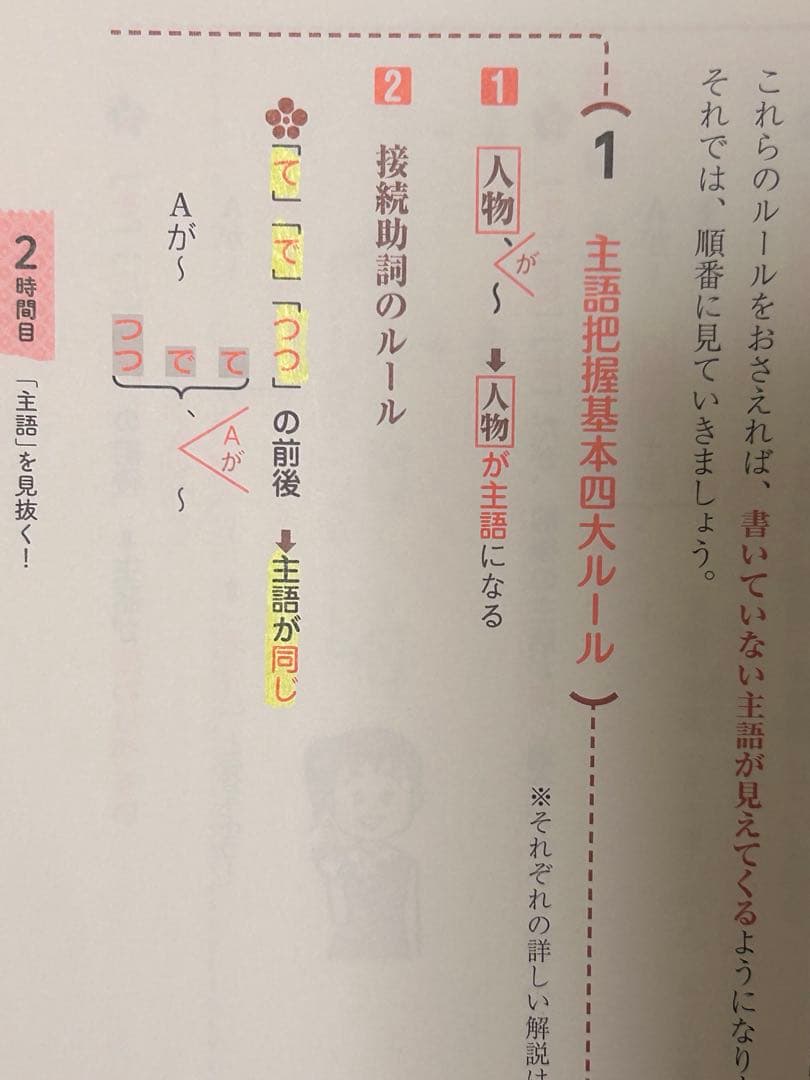 これらのルールをおさえれば、書いていない主語が見えてくるようになり
それでは、順番に見ていきましょう。
1 主語把握基本四大ルール
※それぞれの詳しい解説は
1 人物、が〜➡人物が主語になる
2 接続助詞のルール
「て」「で」「つつ」の前後➡主語が同じ
Aが〜
て
で
つつ
、Aが〜
2時間目 「主語」を見抜く!